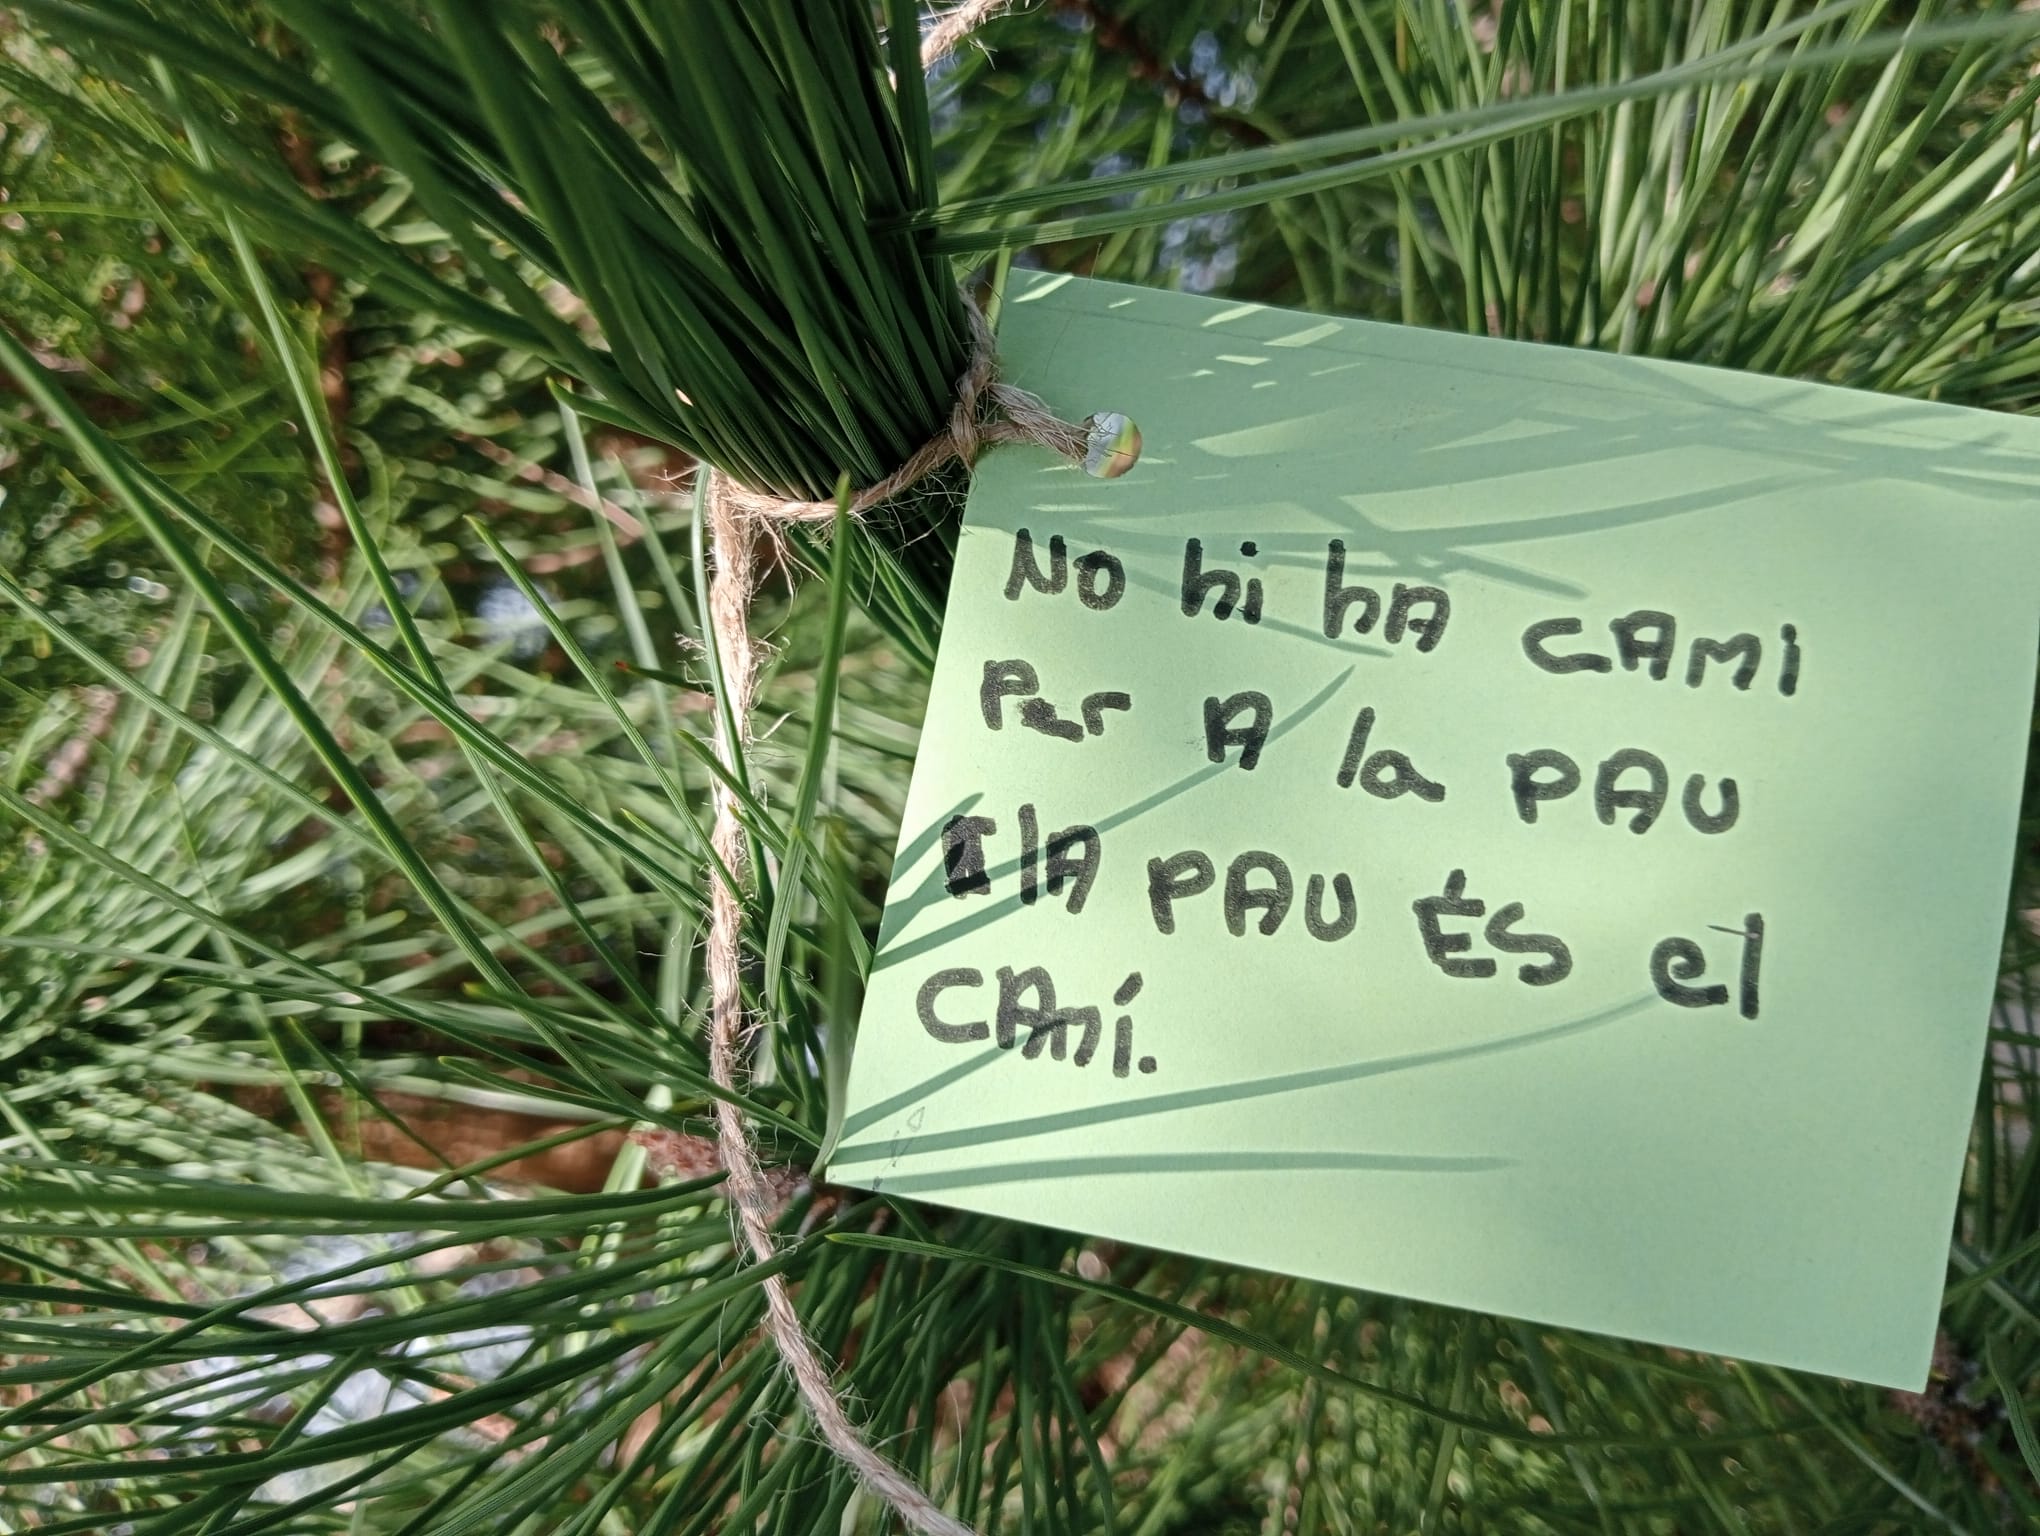 No hi ha CAMi
Per A la PAU
I la PAU ÉS el
CAMí.